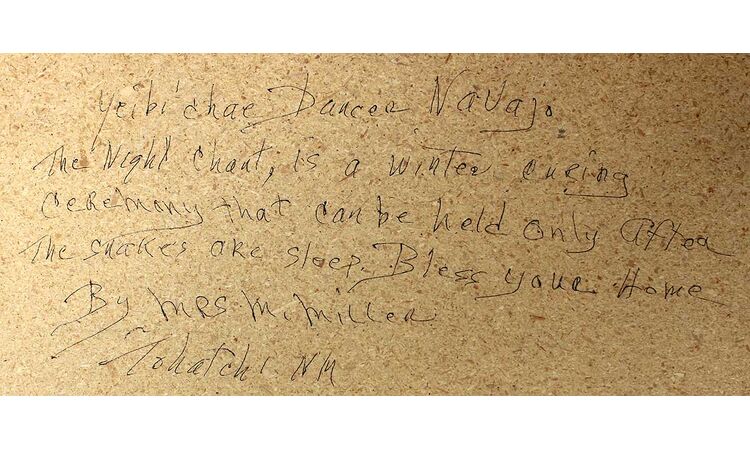 Yeibi'chae Dancer Navajo
The Night Chant, is a winter curing
ceremony that can be held only After
The snakes are sleep. Bless your Home
By Mrs. M. Miller
Tohatchi NM